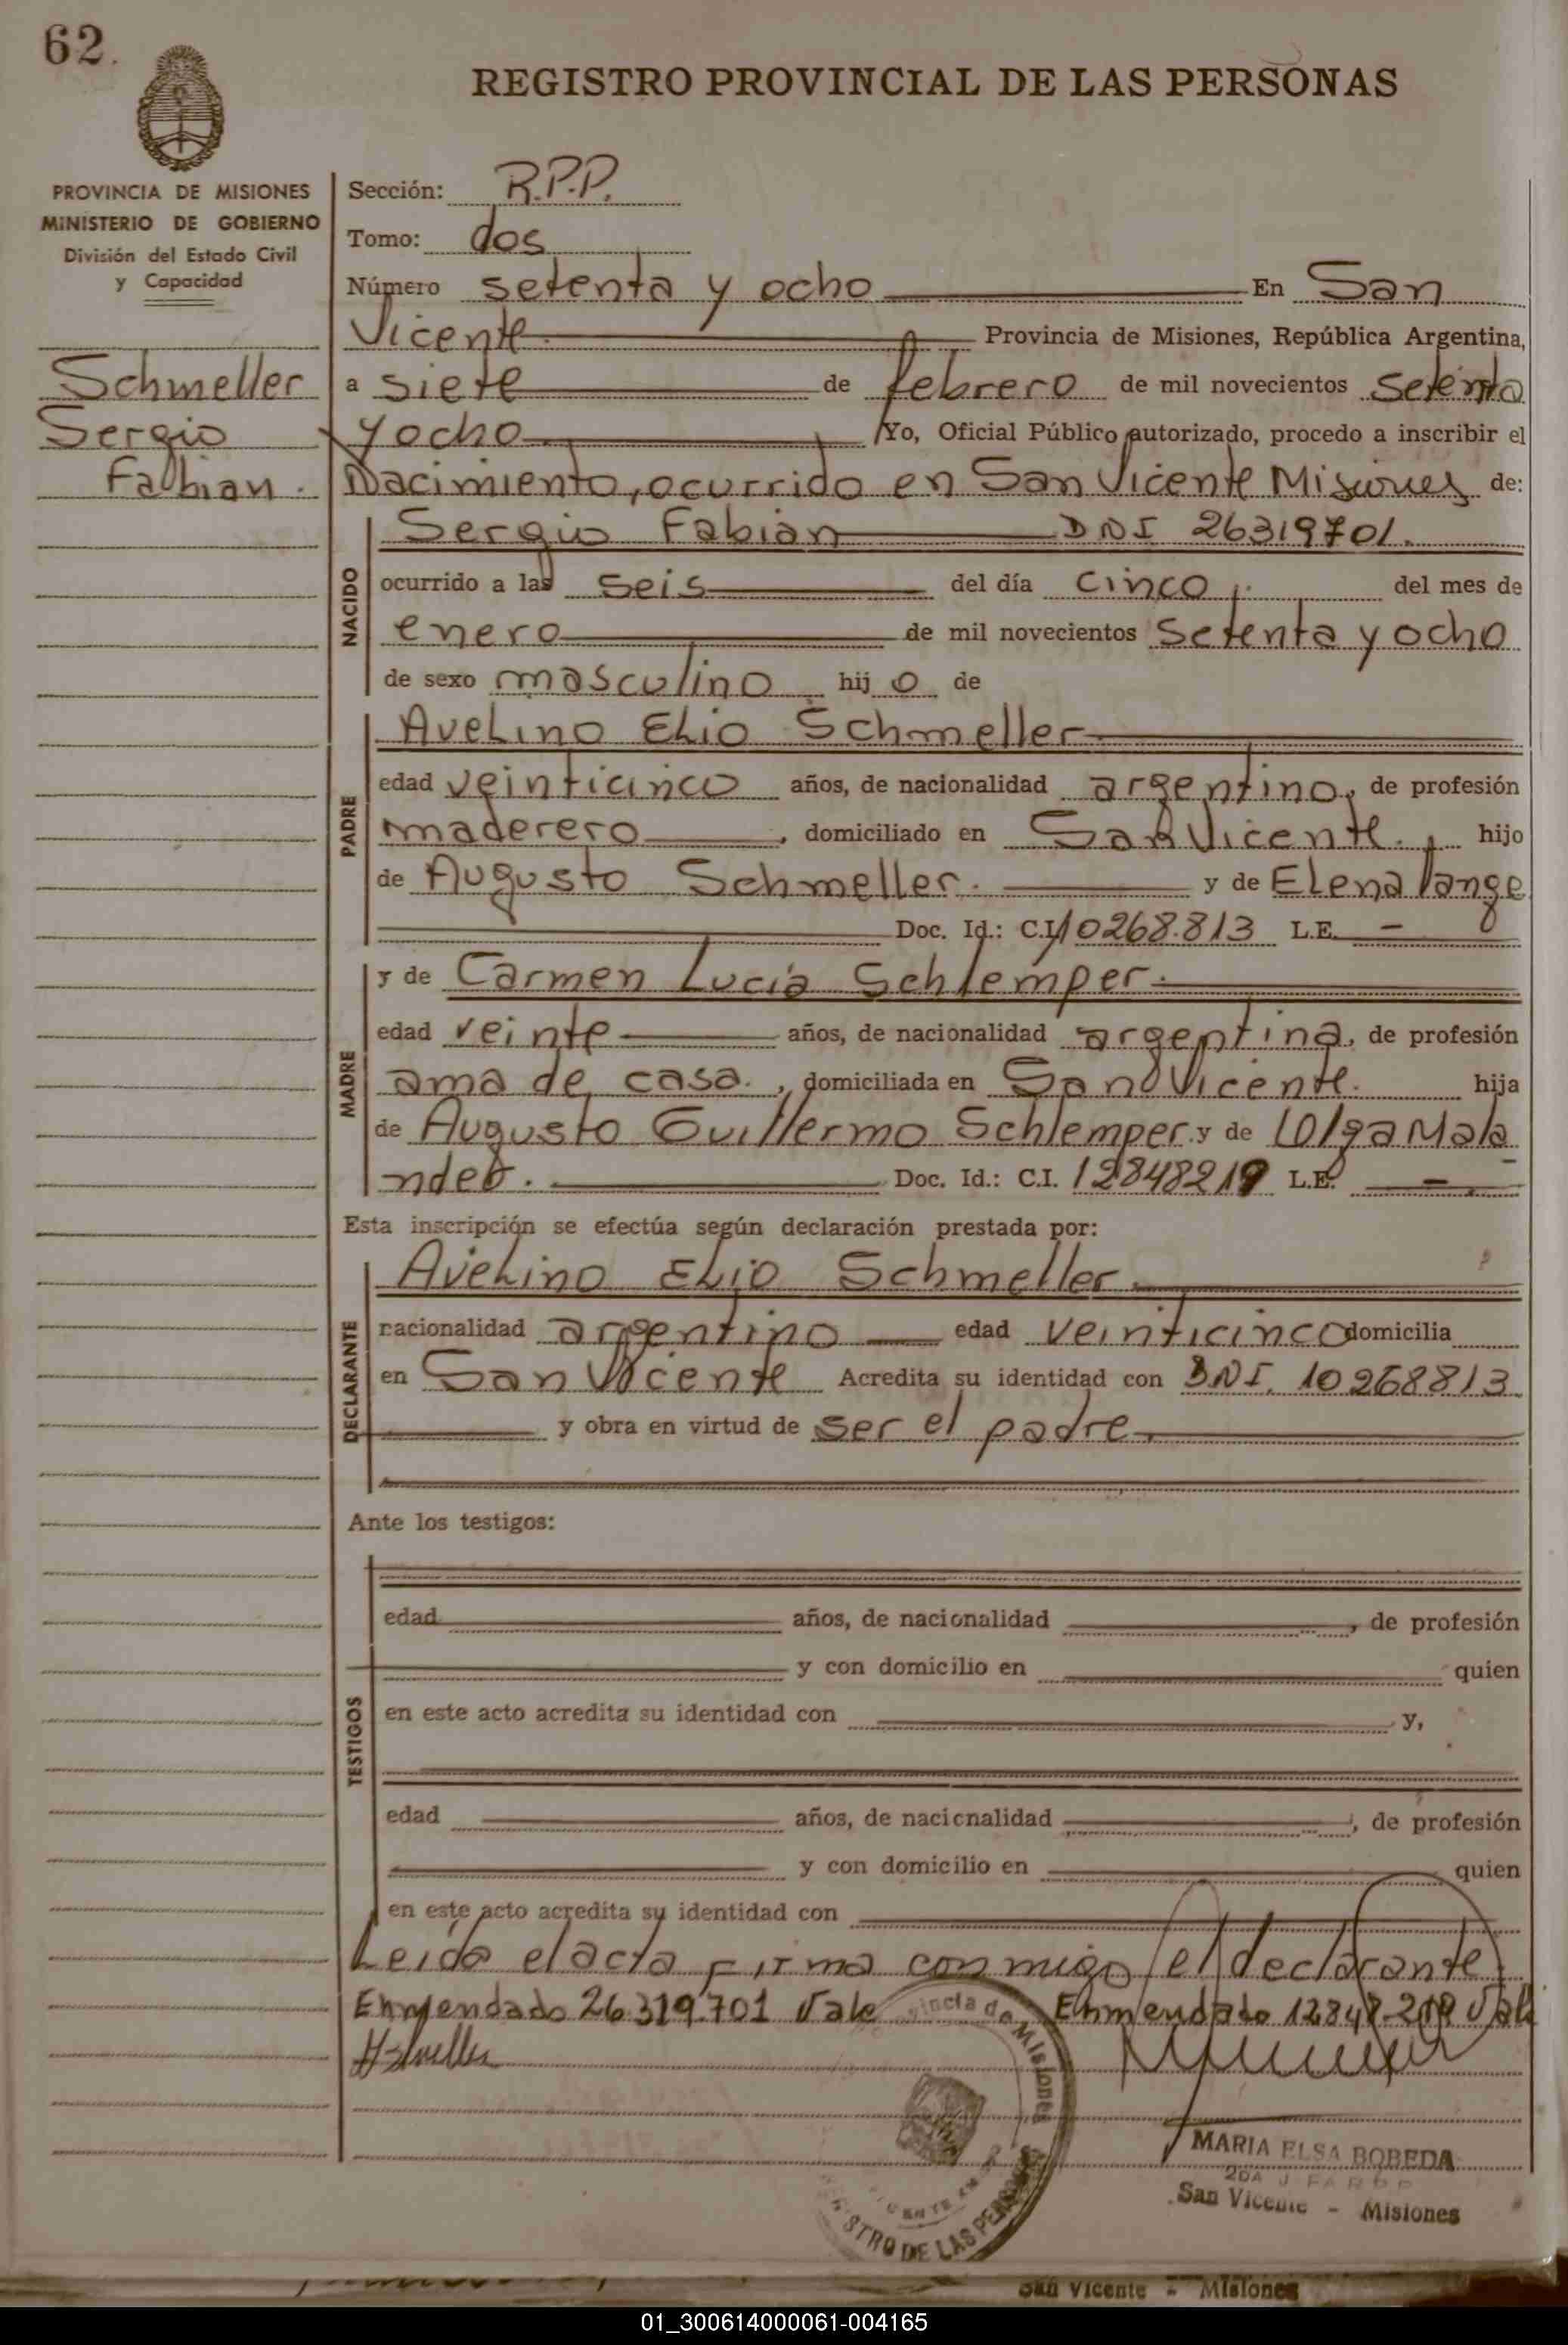 62.
REGISTRO PROVINCIAL DE LAS PERSONAS
PROVINCIA DE MISIONES
MINISTERIO DE GOBIERNO
División del Estado Civil
y Capacidad
Schmeller
Sergio
Fabian.
Sección: R.P.P.
Tomo: dos
Número setenta y ocho En San
Vicente Provincia de Misiones, República Argentina,
a siete de febrero de mil novecientos setenta
y ocho Yo, Oficial Público autorizado, procedo a inscribir el
Nacimiento, ocurrido en San Vicente Misiones de:
NACIDO
Sergio Fabian DNI 26319701.
ocurrido a las seis del día cinco del mes de
enero de mil novecientos setenta y ocho
de sexo masculino hij o de
PADRE
Avelino Elio Schmeller
edad veinticinco años, de nacionalidad argentino, de profesión
maderero, domiciliado en San Vicente. hijo
de Augusto Schmeller. y de Elena lange
Doc. Id.: C.I. 10268.813 L.E. -
MADRE
y de Carmen Lucia Schlemper.
edad veinte años, de nacionalidad argentina, de profesión
ama de casa., domiciliada en San Vicente. hija
de Augusto Guillermo Schlemper y de Olga Mala
nder. Doc. Id.: C.I. 12848219 L.E. -
Esta inscripción se efectúa según declaración prestada por:
DECLARANTE
Avelino Elio Schmeller.
nacionalidad argentino edad veinticinco domicilia
en San Vicente Acredita su identidad con DNI. 10268813
y obra en virtud de ser el padre.
Ante los testigos:
TESTIGOS
edad años, de nacionalidad , de profesión
y con domicilio en quien
en este acto acredita su identidad con y,
edad años, de nacionalidad , de profesión
y con domicilio en quien
en este acto acredita su identidad con
Leida el acta firma conmigo el declarante
Enmendado 26.319.701 Vale Enmendado 12.848.219 Vale
Provincia de Misiones
REGISTRO DE LAS PERSONAS
MARIA ELSA BOBEDA
San Vicente - Misiones
San Vicente - Misiones
01_300614000061-004165